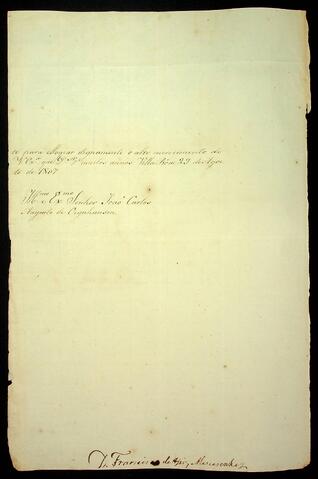 te para elogiar dignamente o alto merecimento de
V Exª que Dˢ gᵈᵉ muitos annos Villa Boa 29 de Agos
to de 1807
Illmo e Exmo Senhor João Carlos
Augusto de Oeynhausen
D. Francisco de Assiz Mascarenhas